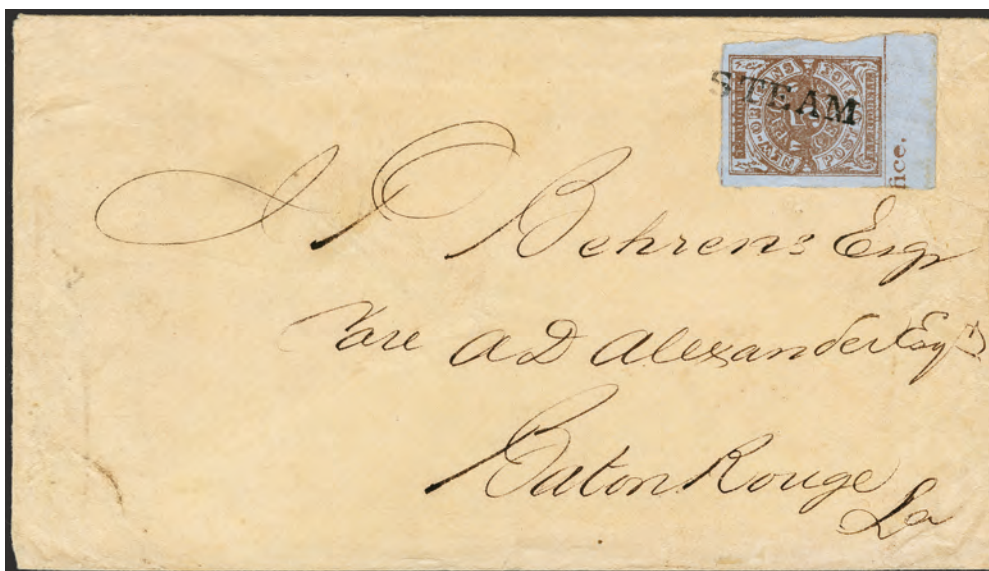 STEAM
NEW-ORLEANS
POST OFFICE
fice.
J P Behrens Esqr
Care A D Alexander Esqr
Baton Rouge
La